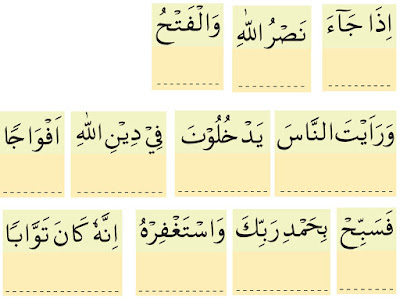 اِذَا جَآءَ نَصْرُ اللّٰهِ وَالْفَتْحُ
وَرَاَيْتَ النَّاسَ يَدْخُلُوْنَ فِيْ دِيْنِ اللّٰهِ اَفْوَاجًا
فَسَبِّحْ بِحَمْدِ رَبِّكَ وَاسْتَغْفِرْهُ اِنَّهٗ كَانَ تَوَّابًا